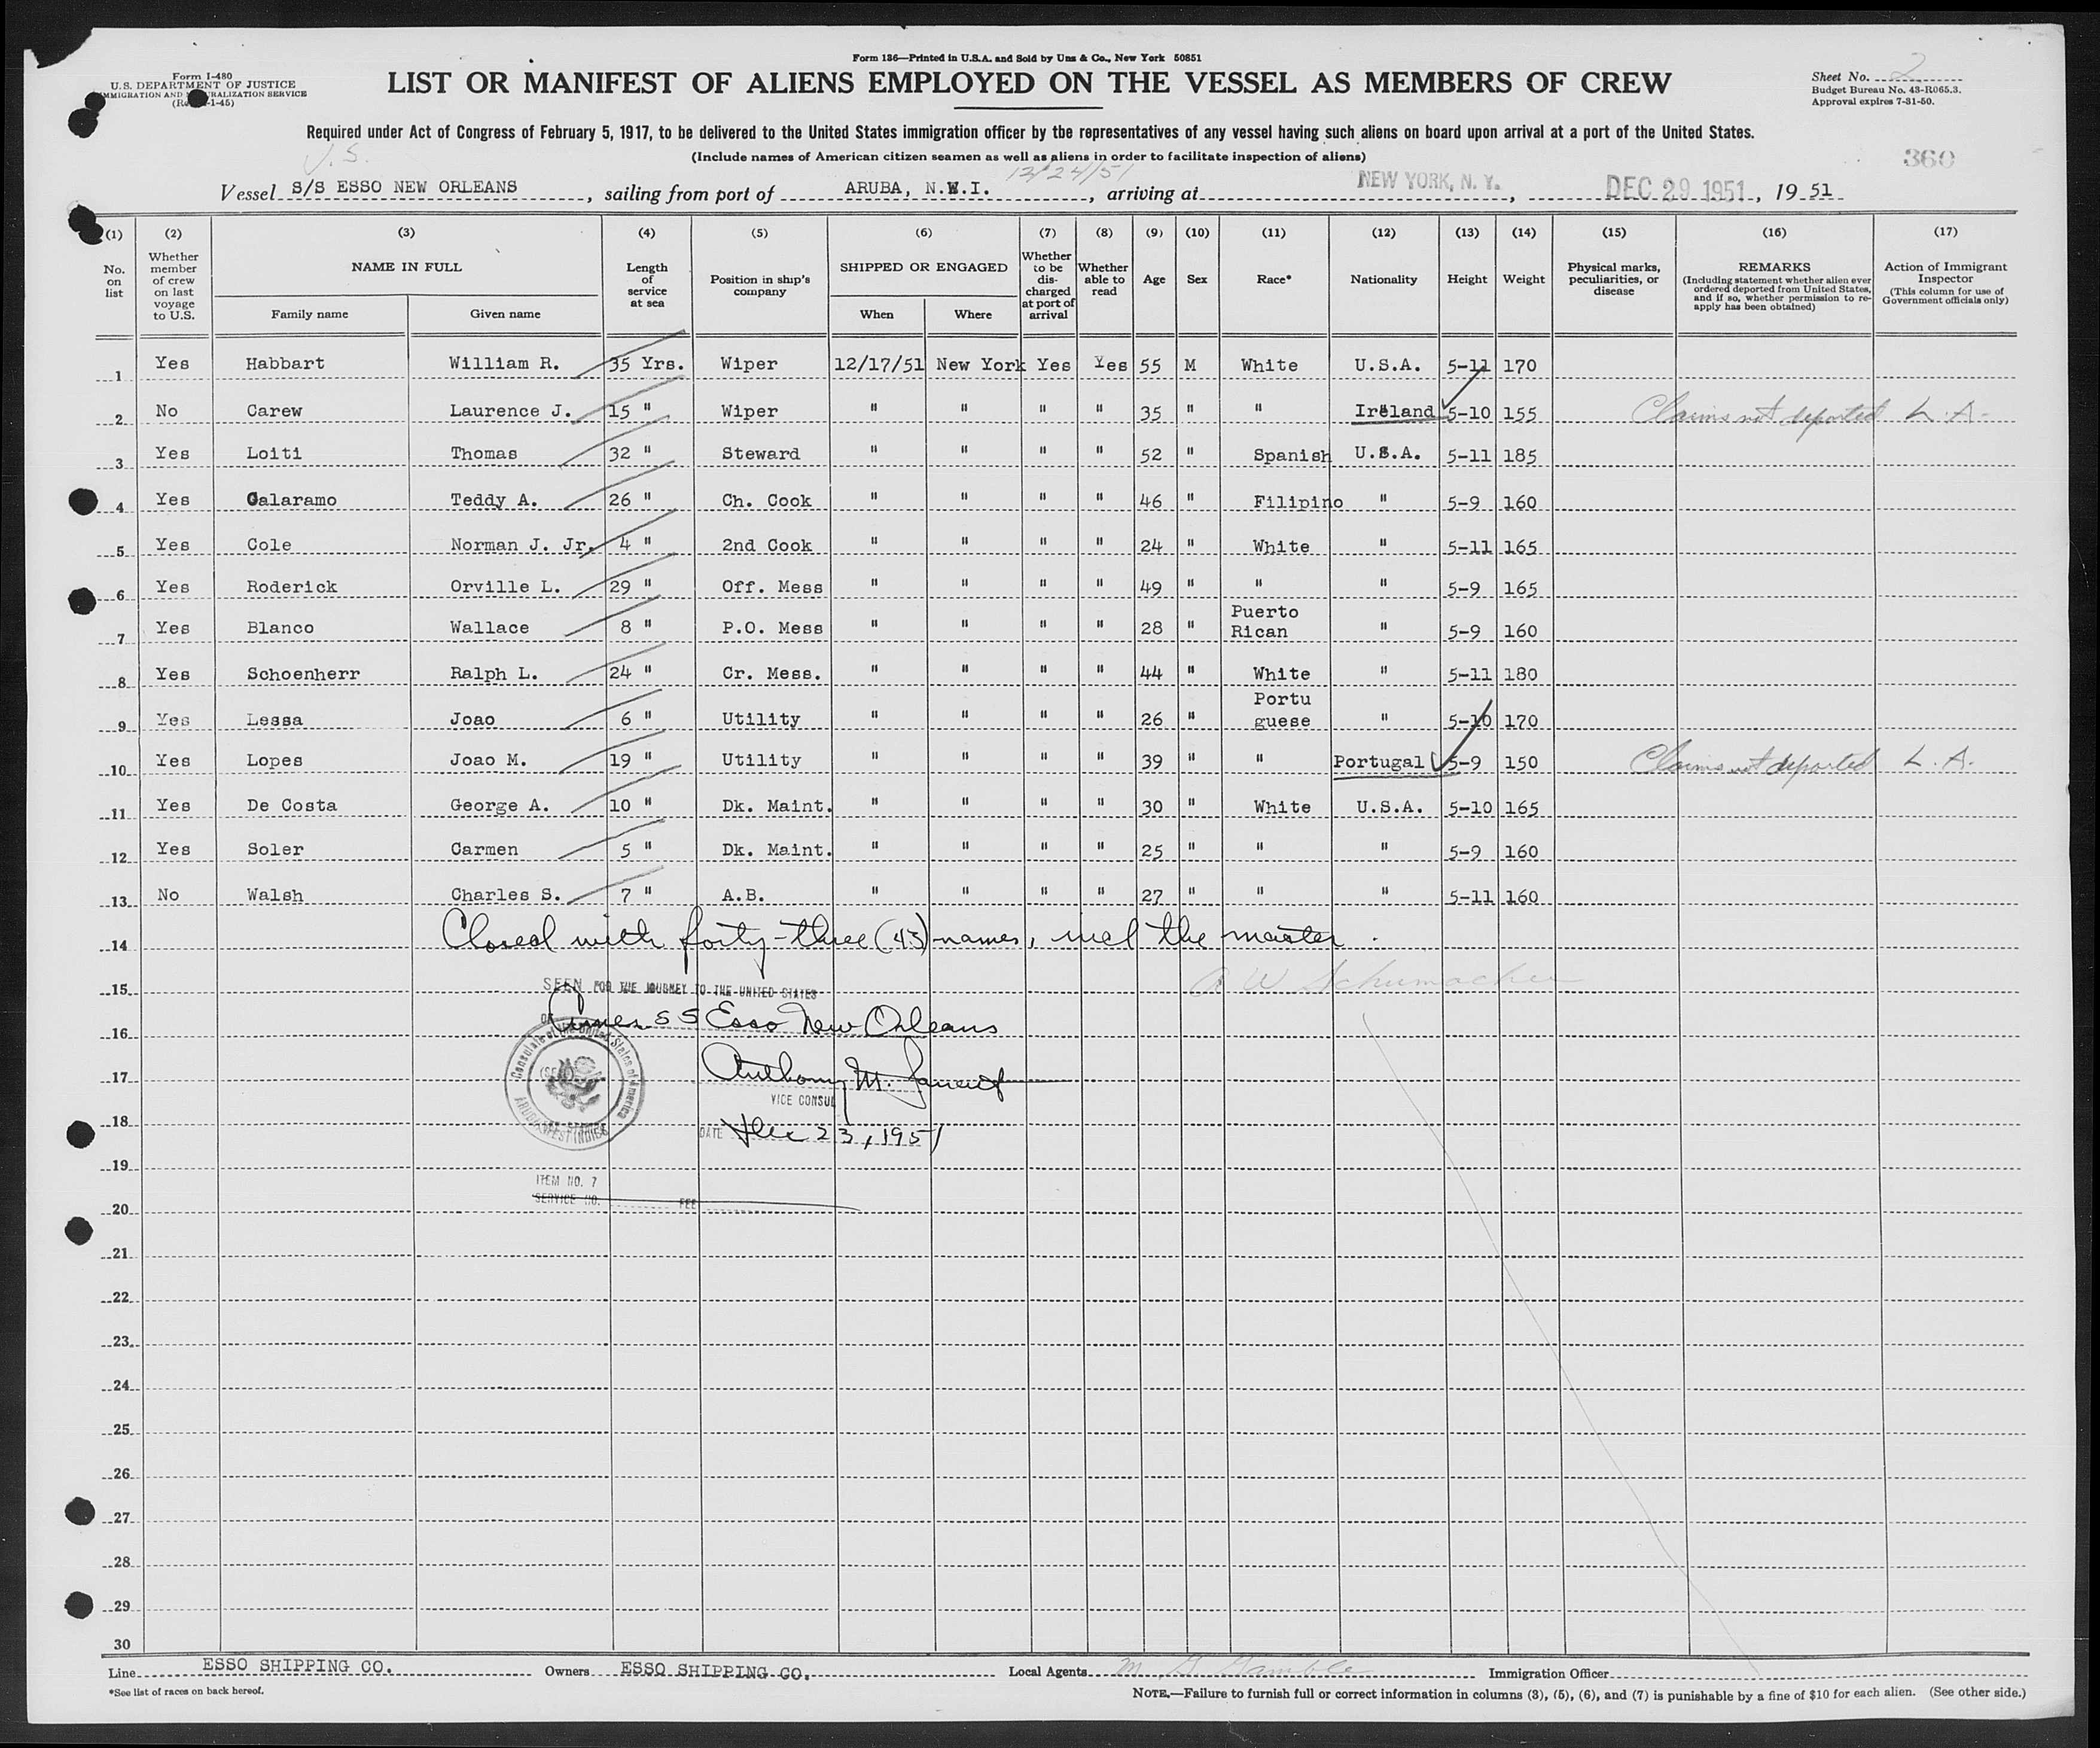 Form I-480
U.S. DEPARTMENT OF JUSTICE
IMMIGRATION AND NATURALIZATION SERVICE
Form 136—Printed in U.S.A. and Sold by Unz & Co., New York 50851
LIST OR MANIFEST OF ALIENS EMPLOYED ON THE VESSEL AS MEMBERS OF CREW
Sheet No. 2
Budget Bureau No. 43-R065.3.
Approval expires 7-31-50.
Required under Act of Congress of February 5, 1917, to be delivered to the United States immigration officer by the representatives of any vessel having such aliens on board upon arrival at a port of the United States.
(Include names of American citizen seamen as well as aliens in order to facilitate inspection of aliens)
U.S.
12/24/51
360
Vessel S/S ESSO NEW ORLEANS, sailing from port of ARUBA, N.W.I., arriving at NEW YORK, N. Y., DEC 29 1951, 19 51
(1) (2) (3) (4) (5) (6) (7) (8) (9) (10) (11) (12) (13) (14) (15) (16) (17)
No. on list
Whether member of crew on last voyage to U.S.
NAME IN FULL
Family name
Given name
Length of service at sea
Position in ship's company
SHIPPED OR ENGAGED
When
Where
Whether to be discharged at port of arrival
Whether able to read
Age
Sex
Race*
Nationality
Height
Weight
Physical marks, peculiarities, or disease
REMARKS
(Including statement whether alien ever ordered deported from United States, and if so, whether permission to re-apply has been obtained)
Action of Immigrant Inspector
(This column for use of Government officials only)
1 Yes Habbart William R. 35 Yrs. Wiper 12/17/51 New York Yes Yes 55 M White U.S.A. 5-11 170
2 No Carew Laurence J. 15 " Wiper " " " " 35 " " Ireland 5-10 155 Claims not deported L.A.
3 Yes Loiti Thomas 32 " Steward " " " " 52 " Spanish U.S.A. 5-11 185
4 Yes Calaramo Teddy A. 26 " Ch. Cook " " " " 46 " Filipino " 5-9 160
5 Yes Cole Norman J. Jr. 4 " 2nd Cook " " " " 24 " White " 5-11 165
6 Yes Roderick Orville L. 29 " Off. Mess " " " " 49 " " " 5-9 165
7 Yes Blanco Wallace 8 " P.O. Mess " " " " 28 " Puerto Rican " 5-9 160
8 Yes Schoenherr Ralph L. 24 " Cr. Mess. " " " " 44 " White " 5-11 180
9 Yes Lessa Joao 6 " Utility " " " " 26 " Portu guese " 5-10 170
10 Yes Lopes Joao M. 19 " Utility " " " " 39 " " Portugal 5-9 150 Claims not deported L.A.
11 Yes De Costa George A. 10 " Dk. Maint. " " " " 30 " White U.S.A. 5-10 165
12 Yes Soler Carmen 5 " Dk. Maint. " " " " 25 " " " 5-9 160
13 No Walsh Charles S. 7 " A.B. " " " " 27 " " " 5-11 160
14 Closed with forty-three (43) names, incl the master.
15 SEEN FOR THE JOURNEY TO THE UNITED STATES
A W Schumacher
16 OF S S Esso New Orleans
Consulate of the United States of America
ARUBA WEST INDIES
17 Anthony M.
VICE CONSUL
18 DATE Dec 23, 1951
19
ITEM NO. 7
SERVICE NO. FEE
20
21
22
23
24
25
26
27
28
29
30
Line ESSO SHIPPING CO. Owners ESSO SHIPPING CO. Local Agents M G Gamble Immigration Officer
*See list of races on back hereof.
NOTE.—Failure to furnish full or correct information in columns (3), (5), (6), and (7) is punishable by a fine of $10 for each alien. (See other side.)